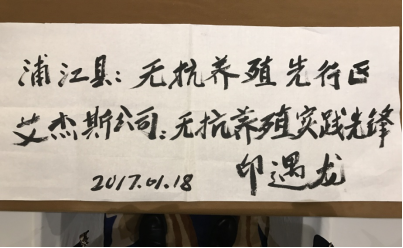 浦江县：无抗养殖先行区
艾杰斯公司：无抗养殖实践先锋
2017.01.18 印遇龙